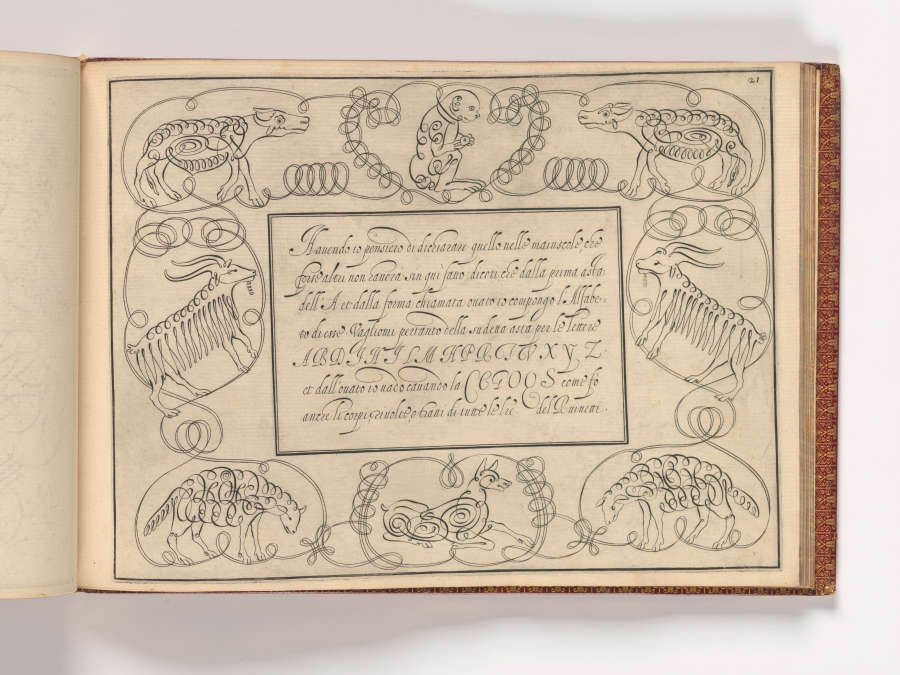 21
Hauendo io pensiero di dichiarare quello nelle maiuscole, che
forse altri non hauerà sin quì fatto, diroti che dalla prima asta
dell'A et dalla forma chiamata ouato io compongo l'Alfabe-
to di esse. Vagliomi pertanto della sudetta asta per le lettere
A B D F H I L M N P R T V X Y Z
et dall'ouato io uado cauando la C E G O Q S come fo
ancor li corpi, riuolte, e tratti di tutte le l're